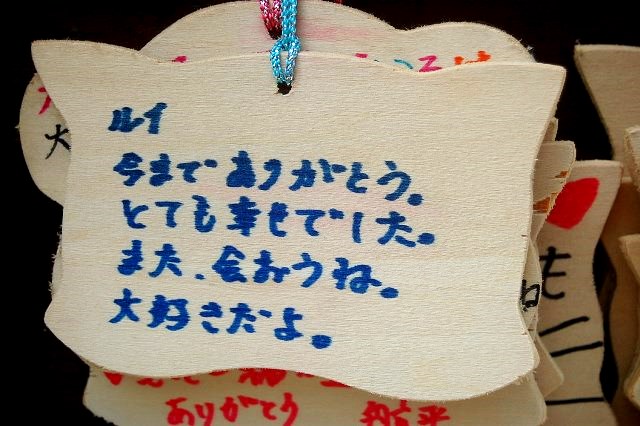 ルイ
今までありがとう。
とても幸せでした。
また、会おうね。
大好きだよ。
ありがとう
大
も
ね